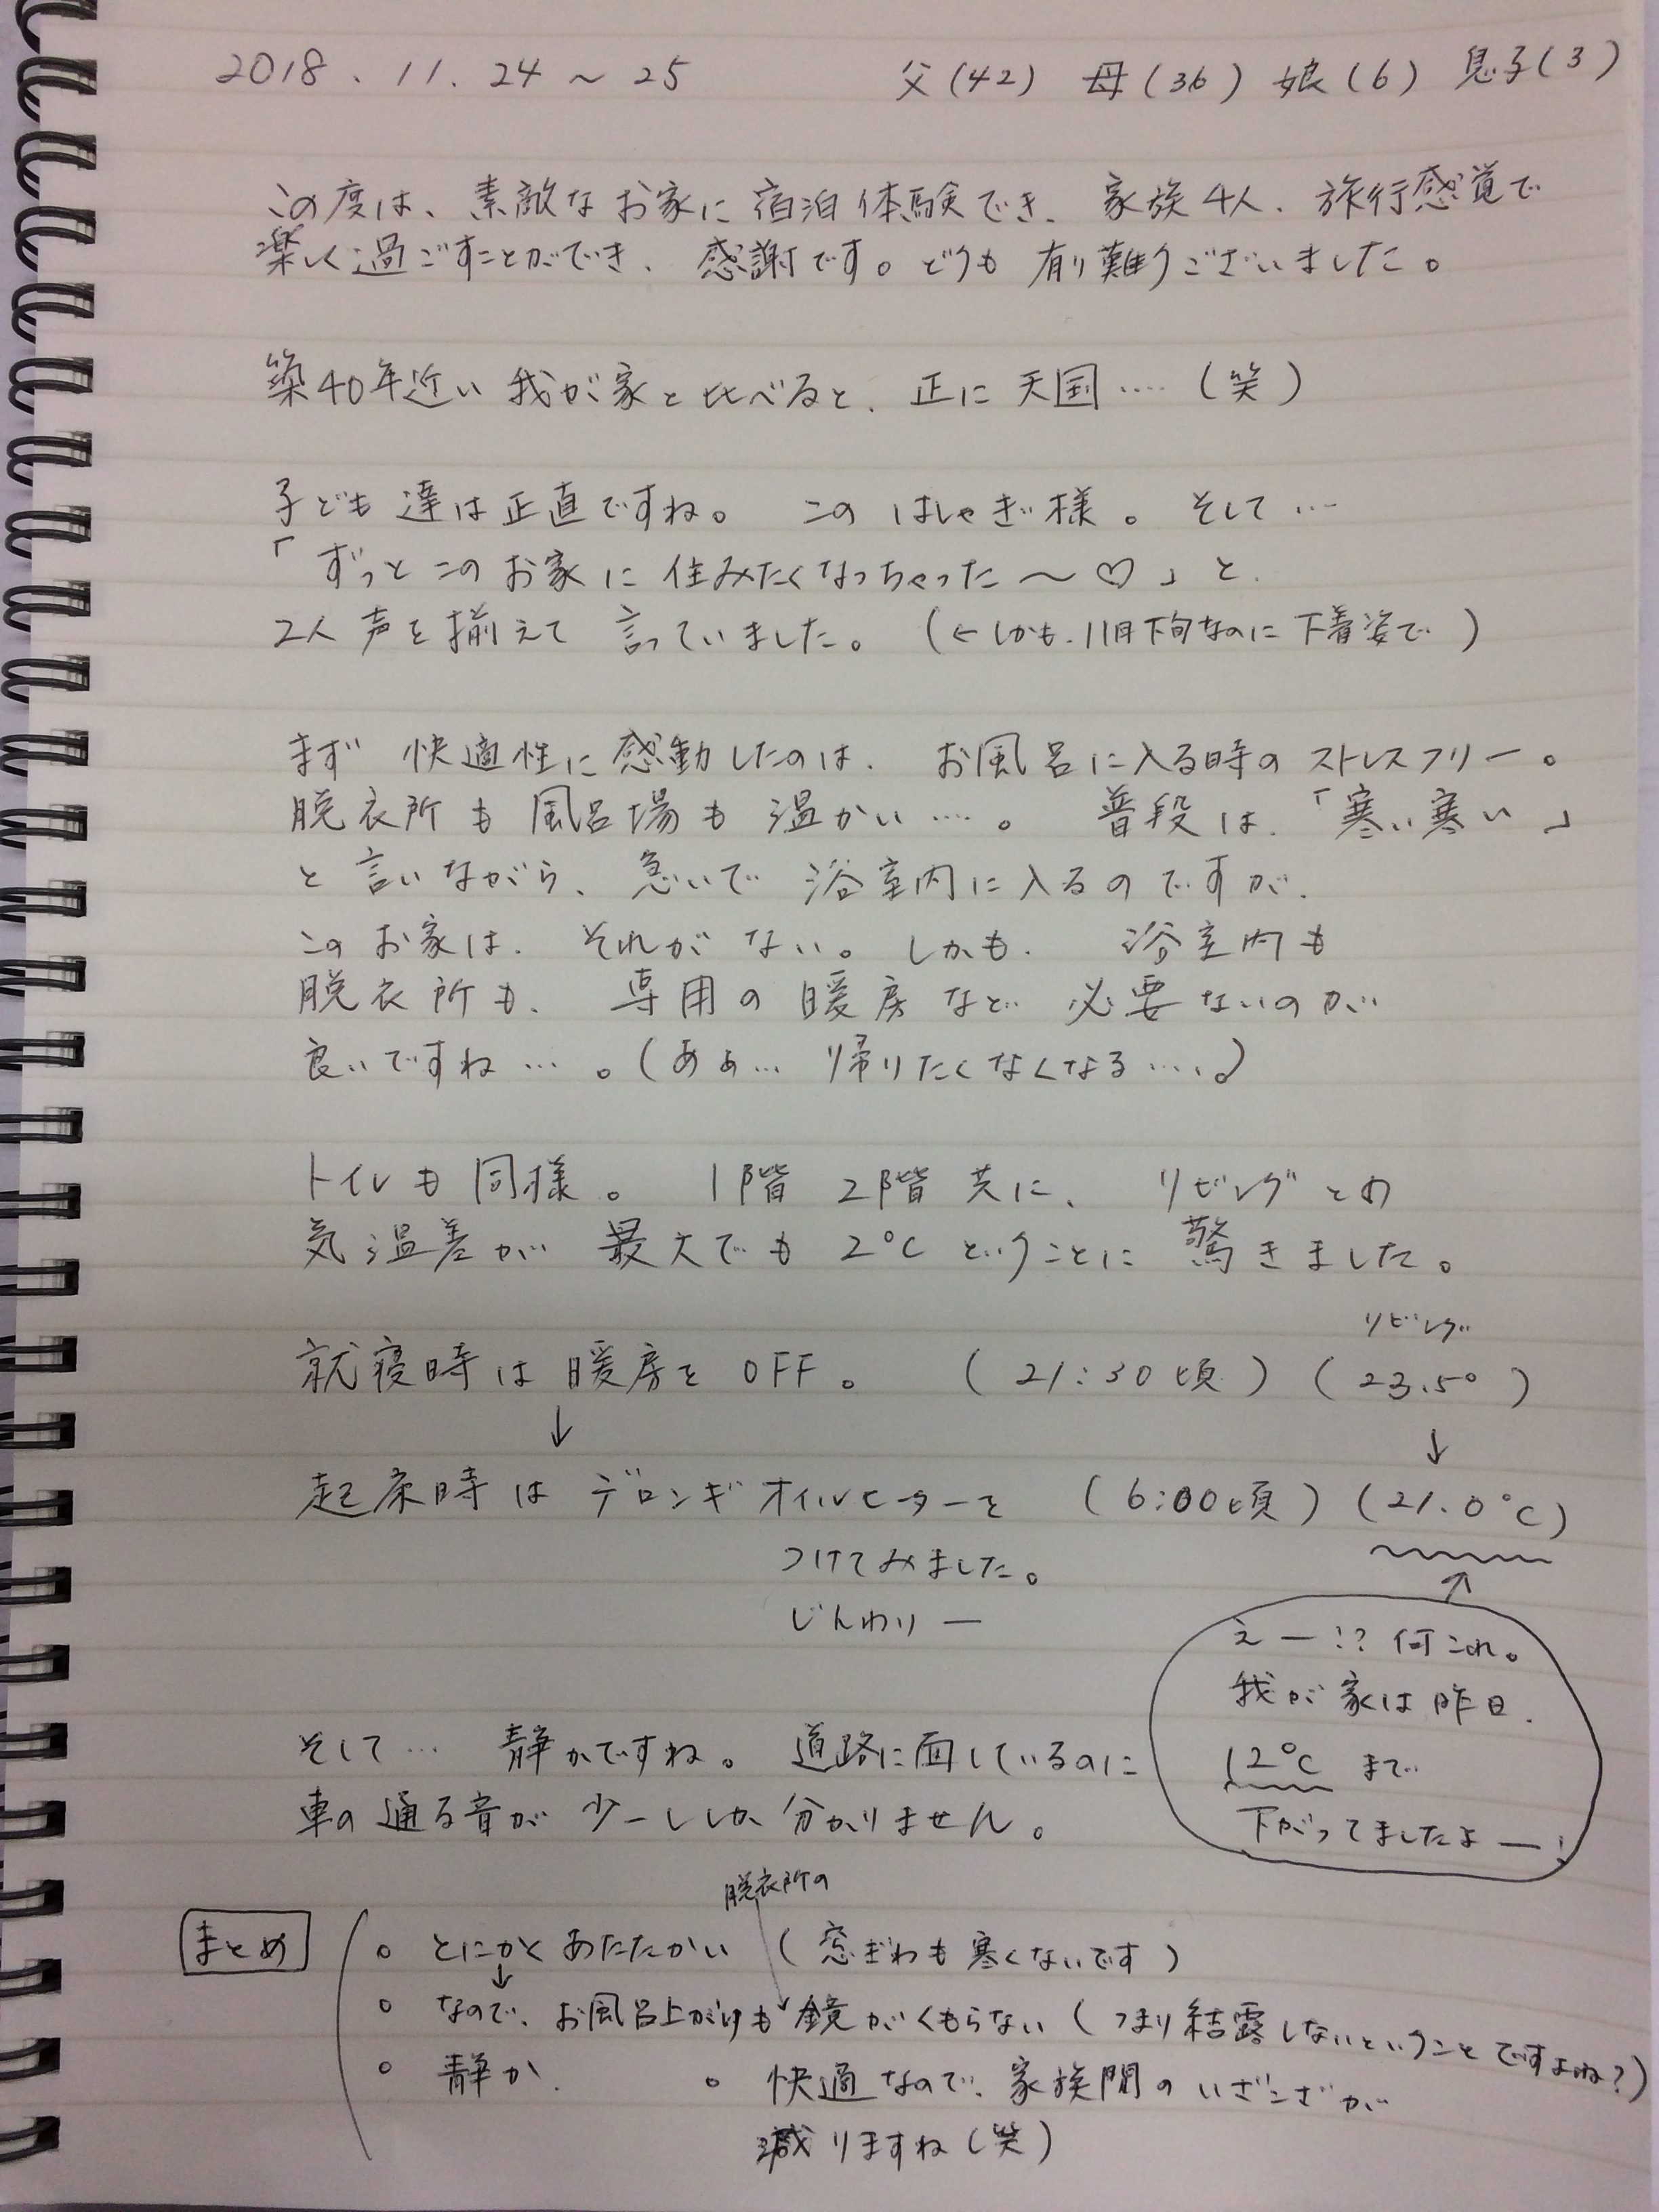 2018.11.24～25　父(42) 母(36) 娘(6) 息子(3)
この度は、素敵なお家に宿泊体験でき、家族4人、旅行感覚で
楽しく過ごすことができ、感謝です。どうも有り難うございました。
築40年近い我が家と比べると、正に天国……(笑)
子ども達は正直ですね。このはしゃぎ様。そして…
「ずっとこのお家に住みたくなっちゃった～♡」と、
2人声を揃えて言っていました。(←しかも、11月下旬なのに下着姿で)
まず快適性に感動したのは、お風呂に入る時のストレスフリー。
脱衣所も風呂場も温かい…。普段は、「寒い寒い」
と言いながら、急いで浴室内に入るのですが、
このお家は、それがない。しかも、浴室内も
脱衣所も、専用の暖房など必要ないのが
良いですね…。(あぁ…帰りたくなくなる…。)
トイレも同様。1階2階共に、リビングとの
気温差が最大でも2℃ということに驚きました。
リビング
就寝時は暖房をOFF。(21:30頃)(23.5°)
↓　↓
起床時はデロンギオイルヒーターを(6:00頃)(21.0℃)
つけてみました。
じんわりー
えー!?何これ。
我が家は昨日、
12℃まで
下がってましたよー!
そして…静かですね。道路に面しているのに
車の通る音が少ーししか分かりません。
脱衣所の
まとめ
○とにかくあたたかい(窓ぎわも寒くないです)
↓
○なので、お風呂上がりも鏡がくもらない(つまり結露しないということですよね?)
○静か、　○快適なので、家族間のいざこざが
減りますね(笑)